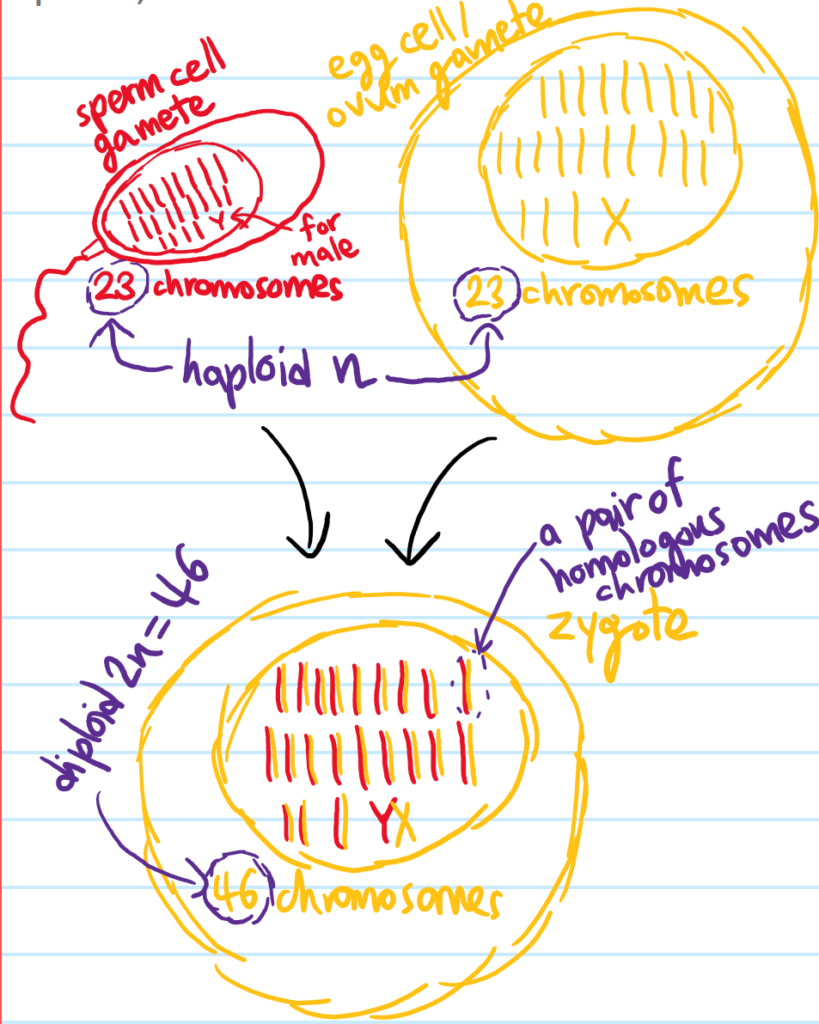 sperm cell
gamete
egg cell/
ovum gamete
Y
for
male
X
23 chromosomes
23 chromosomes
haploid n
a pair of
homologous
chromosomes
zygote
diploid 2n=46
YX
46 chromosomes